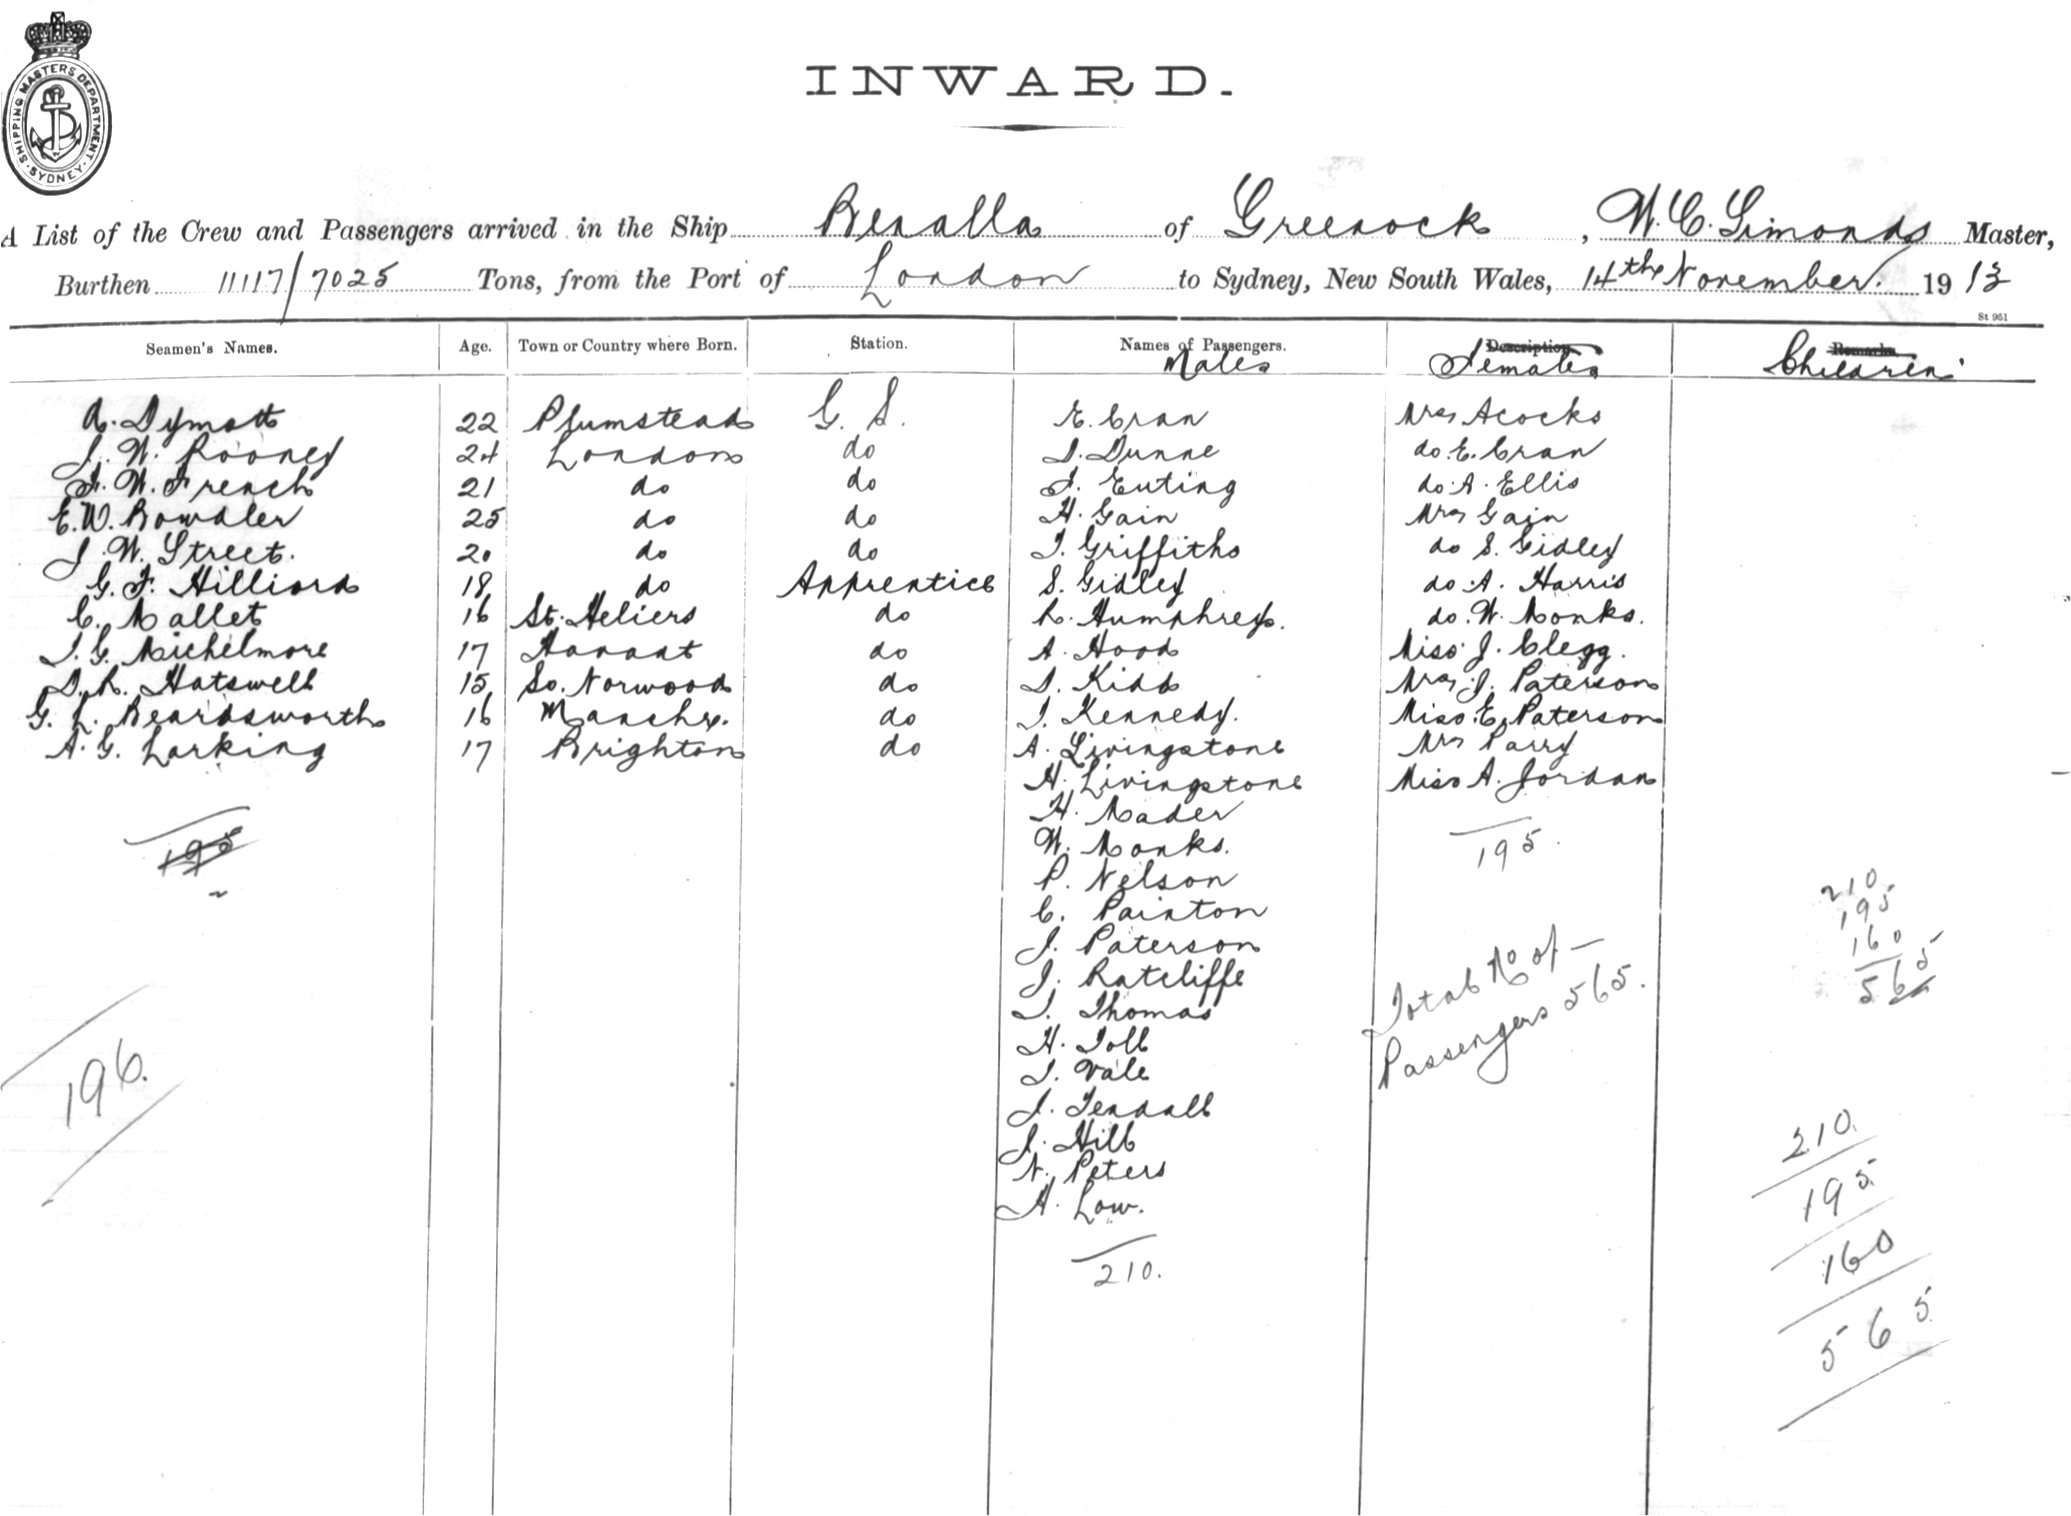 SHIPPING MASTERS DEPARTMENT. SYDNEY.
INWARD.
A List of the Crew and Passengers arrived in the Ship Benalla of Greenock, W. C. Simonds Master,
Burthen 11117/7025 Tons, from the Port of London to Sydney, New South Wales, 14th November. 1913
St 951
Seamen's Names. Age. Town or Country where Born. Station. Names of Passengers. Description Remarks
Males Females Children
A. Dymott 22 Plumstead G. S. E. Cran Mrs Acocks
J. W. Rooney 24 London do D. Dunne do. E. Cran
F. W. French 21 do do J. Euting do. A. Ellis
E. W. Bowdler 25 do do H. Gain Mrs Gain
J. W. Street. 20 do do T. Griffiths do S. Gidley
G. F. Hilliard 18 do Apprentice S. Gidley do. A. Harris
C. Mallet 16 St. Heliers do L. Humphreys. do. W. Monks.
J. G. Michelmore 17 Havant do A. Hood Miss J. Clegg.
D. R. Hatswell 15 So. Norwood do D. Kidd Mrs J. Paterson
G. L. Beardsworth 16 Manchr. do J. Kennedy. Miss. E. Paterson
A. G. Larking 17 Brighton do A. Livingstone Mrs Parry
H. Livingstone Miss A. Jordan
H. Mader
195 W. Monks. 195.
P. Nelson 210
C. Painton 195
J. Paterson 160
J. Ratcliffe 565
T. Thomas Total No of
H. Toll Passengers 565.
196. T. Vale
J. Tendall
J. Hill 210.
N. Peters
H. Low. 195
210. 160
565